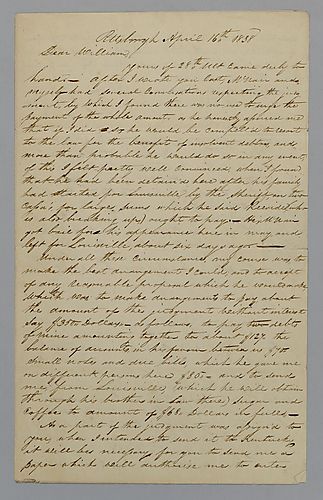 Pittsburgh April 16th 1838
Dear William
Yours of 28th Ult Came duly to
hand. - After I wrote you last, McNair and
myself had several Conversations respecting the judg
ment, by which I found there was no use to urge the
payment of the whole amount, as he honestly assured me
that if I did so he would be compelled to resort
to the law for the benefit of insolvent debtors and
more than probable he would do so in any event,
of this I felt pretty well convinced when I found
that he had been detained here after his family
had started for Louisville by the Sheriff on two
for larger sums which he said
is also breaking up) ought to pay - He McNair
got bail for his appearance here in may and
left for Louisville about six days ago -
Under all these circumstances my course was to
make the best arrangement I could, and to accept
of any reasonable proposal which he would make
Which was to make arrangements to pay about
the amount of the judgment without interest
Say $350 Dollars - as follows, to pay two debts
of mine amounting together to about $127. the
balance of accounts in his favour between us $70
Small notes and due bills which he gave me
on different persons here $80 - and to send
me from Louisville (which he will obtain
through his brother in law there) Sugar and
Coffee to amount of $68 Dollars in full -
As a part of the judgment was assigned to
you, when I intended to send it to Kentucky
it will be necessary for you to send me a
paper which will authorise me to enter